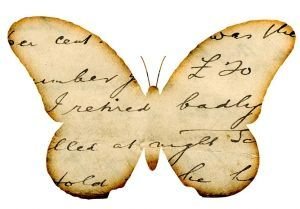 per cent was the
number £ 70
I retired badly
lled at night Sa
told he h